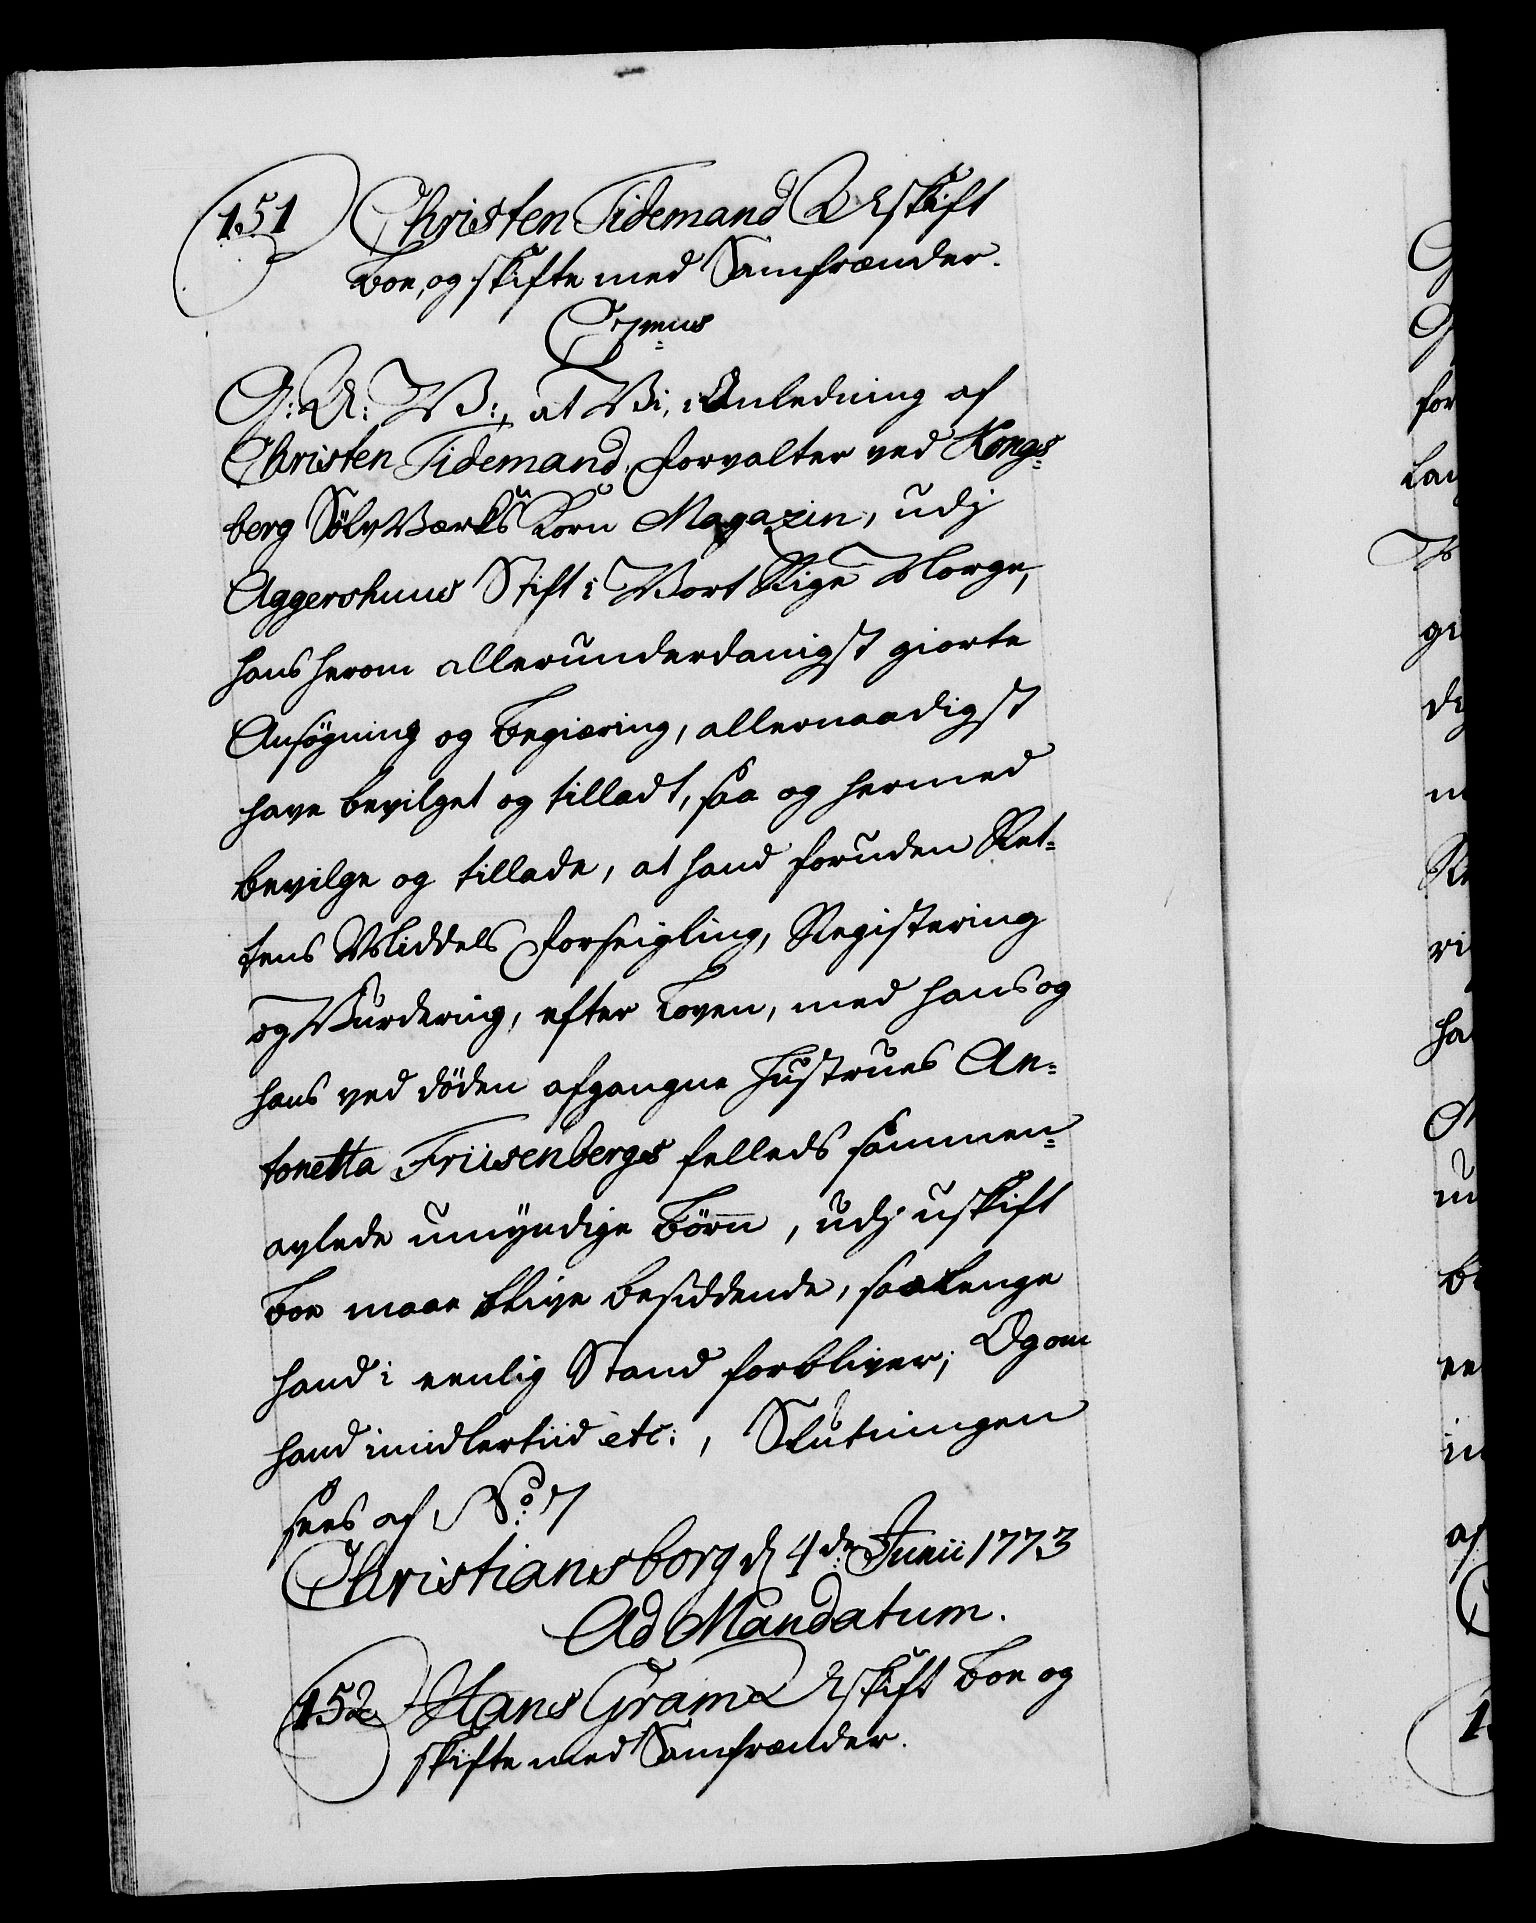 151 Christen Tidemand Uskift
Boe, og skifte med Samfrænder.
C 7mus
G: A: V:, at Vi, i Anledning af
Christen Tidemand, Forvalter ved Kongs-
berg SølvVærks Korn Magazin, udj
Aggershuus Stift i Vort Rige Norge,
hans herom allerunderdanigst giorte
Ansøgning og Begiæring, allernaadigst
have bevilget og tilladt, saa og hermed
bevilge og tillade, at hand foruden Ret-
tens Middels Forseigling, Registering
og Vurdering, efter Loven, med hans og
hans ved døden afgangne Hustrues An-
tonetta Friisenbergs felleds sammen-
avlede umyndige Børn, udj uskift
Boe maae blive besiddende, saalenge
hand i eenlig Stand forbliver; Og om
hand imidlertiid etc:, Slutningen
sees af No. 7
Christiansborg d 4de Junii 1773
Ad Mandatum.
152 Hans Gram Uskift Boe og
skifte med Samfrænder.